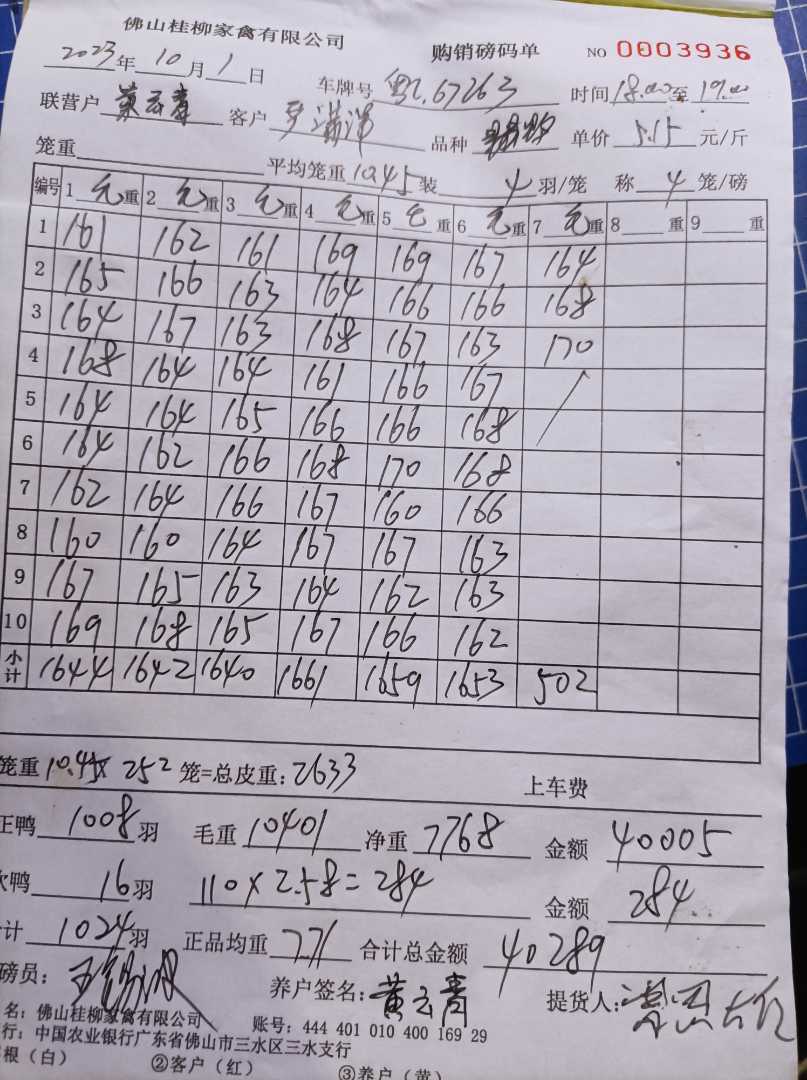 佛山桂柳家禽有限公司
购销磅码单 NO 0003936
2023年10月1日 车牌号 67263 时间18:00至19:00
联营户 黄云青 客户 品种 单价 5.15 元/斤
笼重 平均笼重10.45装 4 羽/笼 称 4 笼/磅
编号 1 重 2 重 3 重 4 重 5 重 6 重 7 重 8 重 9 重
1 161 162 161 169 169 167 164
2 165 166 163 164 166 166 168
3 164 167 163 168 167 163 170
4 168 164 164 161 166 167 /
5 164 164 165 166 166 168
6 164 162 166 168 170 168
7 162 164 166 167 160 166
8 160 160 164 167 167 163
9 167 165 163 164 162 163
10 169 168 165 167 166 162
小计 1644 1642 1640 1661 1659 1653 502
笼重 10.45 x 252 笼=总皮重: 2633 上车费
正鸭 1008 羽 毛重 10401 净重 7768 金额 40005
鸭 16 羽 110 x 2.58 = 284 金额 284
计 1024 羽 正品均重 7.71 合计总金额 40289
磅员: 养户签名: 黄云青 提货人:
名: 佛山桂柳家禽有限公司 账号: 444 401 010 400 169 29
行: 中国农业银行广东省佛山市三水区三水支行
根(白) ②客户(红) ③养户(黄)